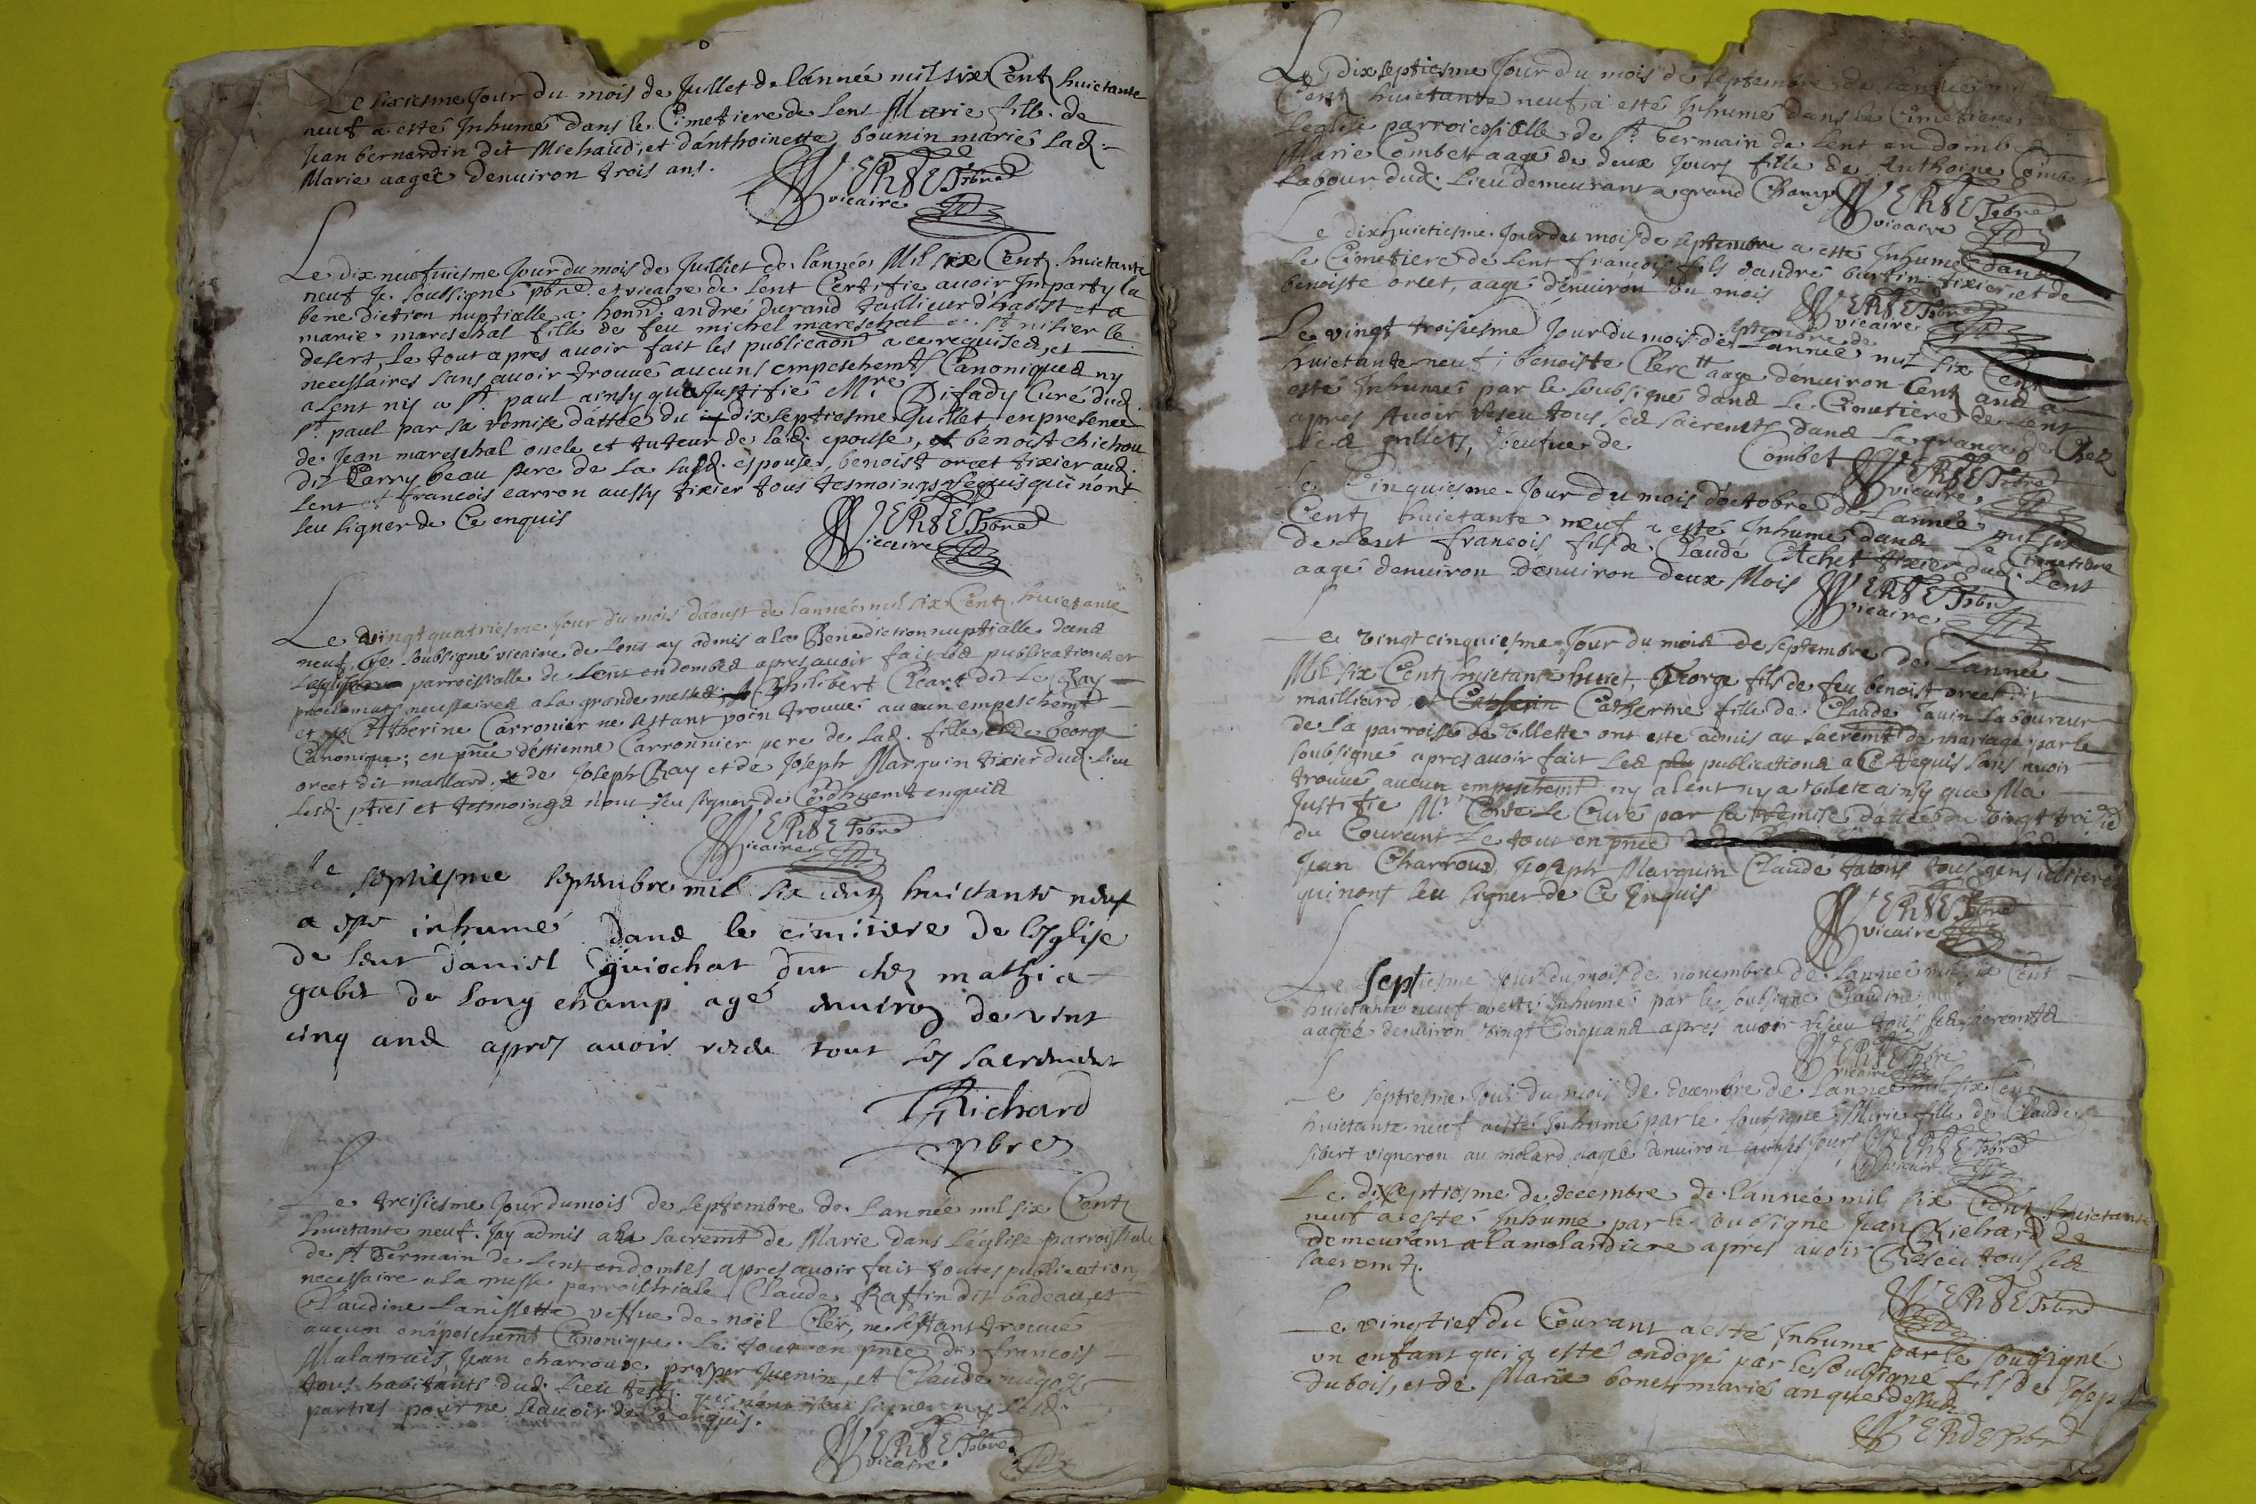 Le sixiesme Jour du mois de Jullet de lánnée mil six Cent huictante
neuf a esté Inhumé dans le Cimetiere de Lent Marie fille de
Jean bernardin dit Michaud, et d'anthoinette bounin mariés Lad.
Marie aagée denuiron trois ans.
VERDE Pbre
vicaire
Le dix neufuiesme Jour du mois de Julliet de lannée Mil six Cent huictante
neuf Je soussigné pbre et vicaire de Lent Certifie auoir Imparty la
benediction nuptialle a honn. andré durand taillieur d'habist et a
marie mareschal fille de feu michel mareschal de St nisier le
desert, Le tout apres auoir fait les publicaon a ce requises, et
necessaires sans auoir trouué aucuns empeschemt Canoniques ny
a Lent ny a St paul ainsy qua Justifié Mre Difady Curé dud.
St paul par sa remise dattée du dix septiesme Juillet en presence
de Jean mareschal oncle et tuteur de lad. epouse, et benoist chichou
dit Carry beau pere de La susd. espouse, benoist orcet tixier aud.
Lent et francois carron aussy tixier tous tesmoings requis qui n'ont
sceu signer de Ce enquis
VERDE Pbre
vicaire
Le vingt quatriesme Jour du mois daoust de lannée mil six Cent huictante
neuf, Je soubsigné vicaire de Lent ay admis a la Benediction nuptialle dans
Leglise parroissialle de Lent en dombes apres auoir fait les publications et
proclamats necessaires a la grande messe, Philibert Cicart dit Le Ray
et Catherine Carronier ne sestant poin trouué aucun empeschemt
Canonique; en pnce d'estienne Carronnier pere de Lad. fille de George
orcet dit maillard. de Joseph Ray et de Joseph Marquin tixier dud. Lieu
Lesd. pties et tesmoings n'ont sceu signer de Ce dhuemt enquis
VERDE Pbre
vicaire
le septiesme septembre mil six cent huictante neuf
a este inhumé dans le cimitiere de l'Eglise
de Lent daniel guiochat dit chez mathia
gabet de Long champ agé enuiron de vint
cinq ans apprez auoir receu tout les sacrement
Richard
pbre
Le treisiesme Jour du mois de septembre de Lannée mil six Cent
huictante neuf. Jay admis au sacremt de Marie dans L'eglise parroissiale
de St Germain de Lent en dombes apres auoir fait toutes publications
necessaire a la messe parroissialle Claude Raffin dit badeau, et
Claudine Lanissette vefue de noël Cler, ne sestant trouué
aucun enpeschemt Canonique. Le tout en pnce de francois
Malatrais, Jean charroud, prosper Juenin, et Claude nugoz
tous habitants dud. Lieu tesm. qui n'ont sceu signer ny Lesd.
parties pour ne scauoir de Ce enquis.
VERDE Pbre
vicaire
Le dix septiesme Jour du mois de septembre de Lannée mil
Cent huictante neuf à esté Inhumé dans le Cimetiere de
Leglise parroicessialle de St Germain de Lent en dombes
Marie Combet aagé de deux Jours fille de Anthoine Combet
Labour. dud. Lieu demeurant a grand Champ VERDE Pbre
vicaire
Le dixhuictiesme Jour du mois de septembre a esté Inhumé dans
Le Cimetiere de Lent francois fils dandré burtin tixier, et de
benoiste orcet, aagé denuiron un mois VERDE Pbre
vicaire
Le vingt troisiesme Jour du mois de septembre de Lannée mil six Cent
huictante neuf, benoiste Clerc aagé denuiron Cent ans a
esté Inhumée par le soubsigné dans Le Cimetiere de Lent
apres auoir receu tous ses sacremts dans La grange de Chez
les grillets, veufue de Combet VERDE Pbre
vicaire
Le Cinquiesme Jour du mois d'octobre de Lannée mil six
Cent huictante neuf a esté Inhumé dans Le Cimetiere
de Lent francois fils de Claude Cachet tixier dud. Lent
aagé denuiron denuiron deux Mois VERDE Pbre
vicaire
Le vingt cinquiesme Jour du mois de septembre de Lannée
Mil six Cent huictante huict, George fils de feu benoist orcet dit
mailliard, et Catherine fille de Claude Jauin Laboureur
de La parroisse de Villette ont esté admis au sacremt de mariage par le
soubsigné apres auoir fait Les publications a Ce requis sans auoir
trouué aucun empeschemt ny a Lent ny a Villete ainsy que Ma
Justifié Mr Conte Le Curé par sa remise dattée du vingt trois
du Courant Le tout en pnce de
Jean Charroud, Joseph Marquin Claude tatons tous gens
qui n'ont sceu signer de Ce Enquis
VERDE Pbre
vicaire
Le Septiesme Jour du mois de nouembre de Lannée mil six Cent
huictante neuf a esté Inhumée par le soubsigné Claudine
aagée denuiron vingt Cinq ans apres auoir receu tous ses sacremts
VERDE Pbre
vicaire
Le septiesme Jour du mois de decembre de Lannée mil six Cent
huictante neuf a esté Inhumé par le soussigné Marie fille de Claude
sibert vigneron au molard aagée denuiron quinse Jours VERDE Pbre
vicaire
Le dixseptiesme de decembre de Lannée mil six Cent huictante
neuf a esté Inhumé par le soubsigné Jean Richard de
demeurant a la molardiere aprés auoir Receu tous ses
sacremt.
VERDE Pbre
Le vingties du Courant a esté Inhumé par le soubsigné
vn enfant qui a esté ondoyé par le soubsigné fils de Josep
dubois, et de Marie bonet mariés an que dessus
VERDE Pbre